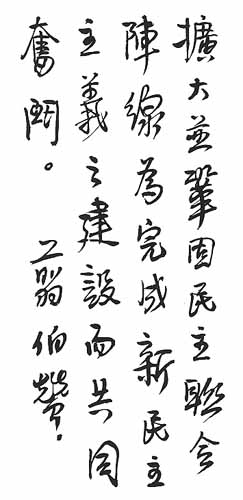 擴大並鞏固民主聯合
陣線為完成新民主
主義之建設而共同
奮鬥。 翦伯贊.